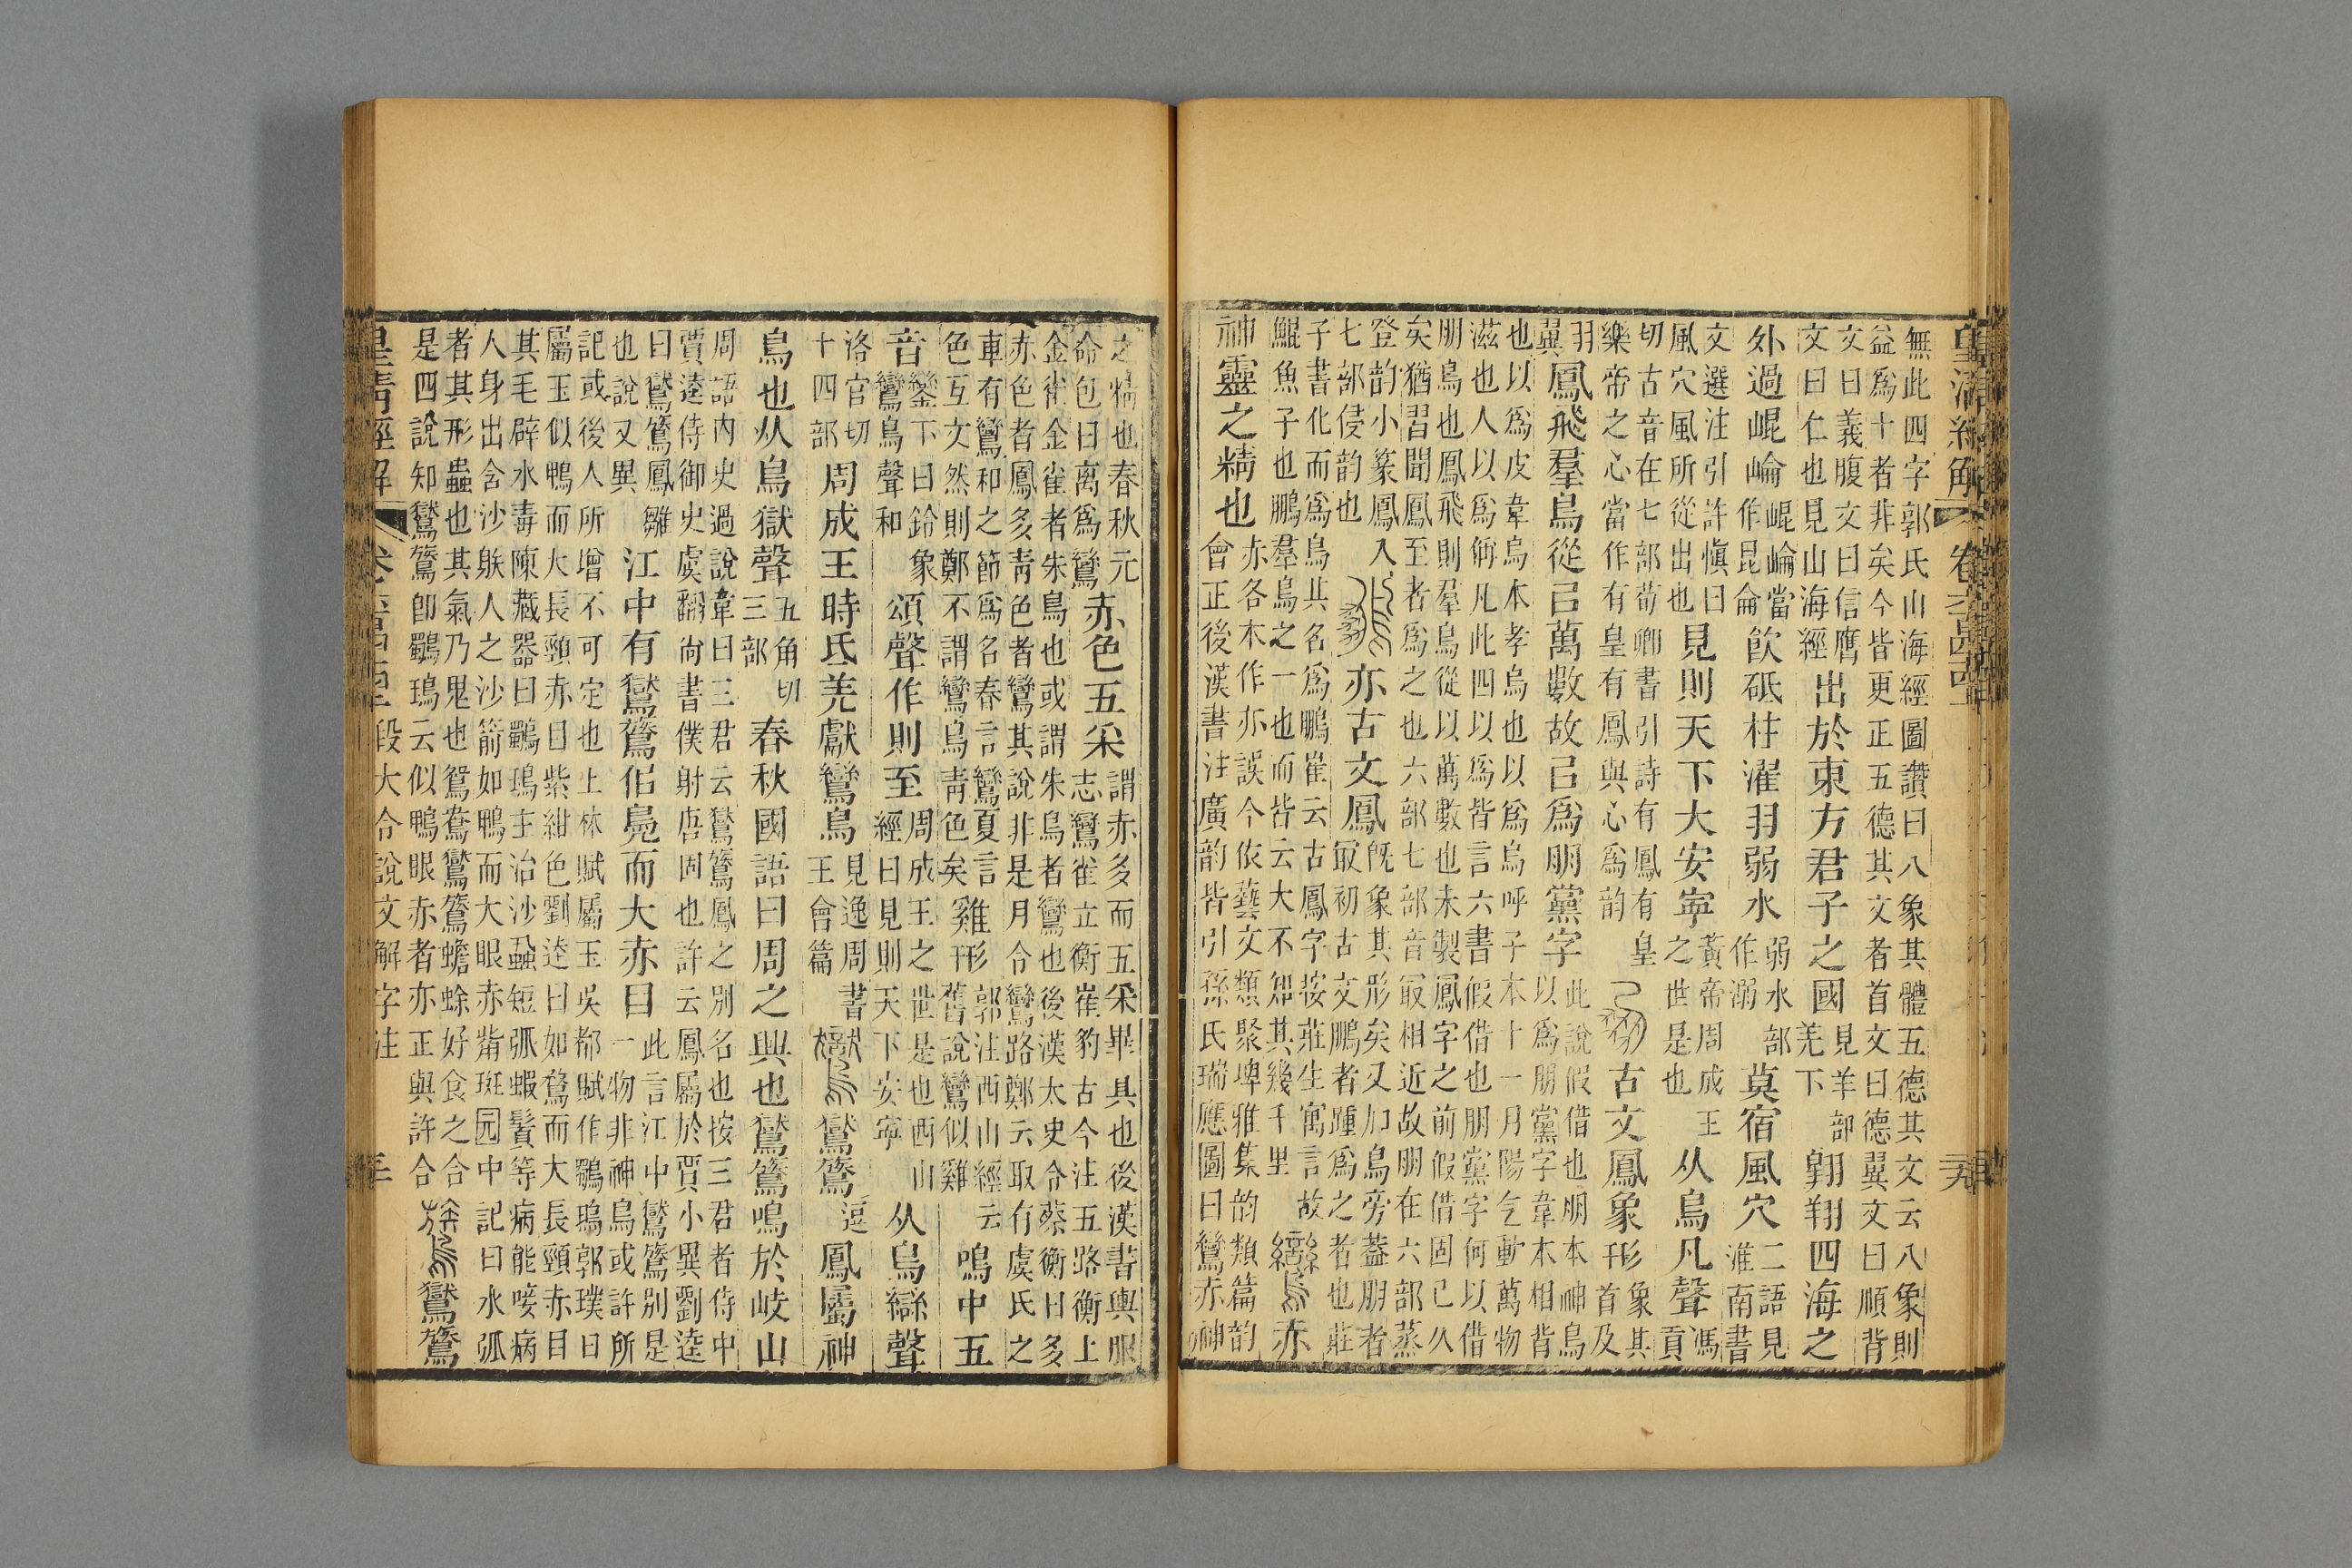 皇清經解
無此四字郭氏山海經圖讚曰八象其體五德其文云八象則
益爲十者非矣今皆更正五德其文者首文曰德翼文曰順背
文曰義腹文曰信膺文曰仁也見山海經出於東方君子之國見羊部羌下翺翔四海之
外過崐崘崐崘當作昆侖飮砥柱濯羽弱水弱水部作溺莫宿風穴二語見淮南書
文選注引許愼曰風穴風所從出也見則天下大安寍黃帝周成王之世是也从鳥凡聲馮貢
切古音在七部荀卿書引詩有鳳有皇樂帝之心當作有皇有鳳與心爲韵古文鳳象形象其首及
羽翼鳳飛羣鳥從㠯萬數故㠯爲朋黨字此說假借也朋本神鳥以爲朋黨字韋本相背
也以爲皮韋烏本孝烏也以爲烏呼子本十一月陽气動萬物
滋也人以爲偁凡此四以爲皆言六書假借也朋黨字何以借
朋鳥也鳳飛則羣鳥從以萬數也未製鳳字之前假借固已久
矣猶習聞鳳至者爲之也六部七部音冣相近故朋在六部蒸
登韵小篆鳳入七部侵韵也亦古文鳳旣象其形矣又加鳥旁葢朋者冣初古文鵬者踵爲之者也莊
子書化而爲鳥其名爲鵬崔云古鳳字按莊生寓言故鯤魚子也鵬羣鳥之一也而皆云大不知其幾千里鸞亦
神靈之精也赤各本作亦誤今依藝文類聚埤雅集韵類篇韵會正後漢書注廣韵皆引孫氏瑞應圖曰鸞赤神
之精也春秋元命包曰离爲鸞赤色五采謂赤多而五采畢具也後漢書輿服志鸞雀立衡崔豹古今注五路衡上
金雀金雀者朱鳥也或謂朱鳥者鸞也後漢太史令蔡衡曰多
赤色者鳳多靑色者鸞其說非是月令鸞路鄭云取有虞氏之
車有鸞和之節爲名春言鸞夏言色互文然則鄭不謂鸞鳥靑色矣雞形郭注西山經云舊說鸞似雞鳴中五
音鑾下曰鈴象鸞鳥聲和頌聲作則至周成王之世是也西山經曰見則天下安寧从鳥䜌聲
洛官切十四部周成王時氐羌獻鸞鳥見逸周書王會篇鸑鸑鷟逗鳳屬神
鳥也从鳥獄聲五角切三部春秋國語曰周之興也鸑鷟鳴於岐山
周語內史過說韋曰三君云鸑鷟鳳之別名也按三君者侍中
賈逵侍御史虞翻尙書僕射唐固也許云鳳屬於賈小異劉逵
曰鸑鷟鳳雛也說又異江中有鸑鷟佀鳧而大赤目此言江中鸑鷟別是一物非神鳥或許所
記或後人所增不可定也上林賦屬玉吳都賦作鸀鳿郭璞曰
屬玉似鴨而大長頸赤目紫紺色劉逵曰如鶩而大長頸赤目
其毛辟水毒陳藏器曰鸀鳿主治沙蝨短弧蝦鬚等病能唼病
人身出含沙躲人之沙箭如鴨而大眼赤觜斑园中記曰水弧
者其形蟲也其氣乃鬼也鴛鴦鸑鷟蟾蜍好食之合
是四說知鸑鷟卽鸀鳿云似鴨眼赤者亦正與許合鷟鸑鷟
皇清經解 段大令說文解字注